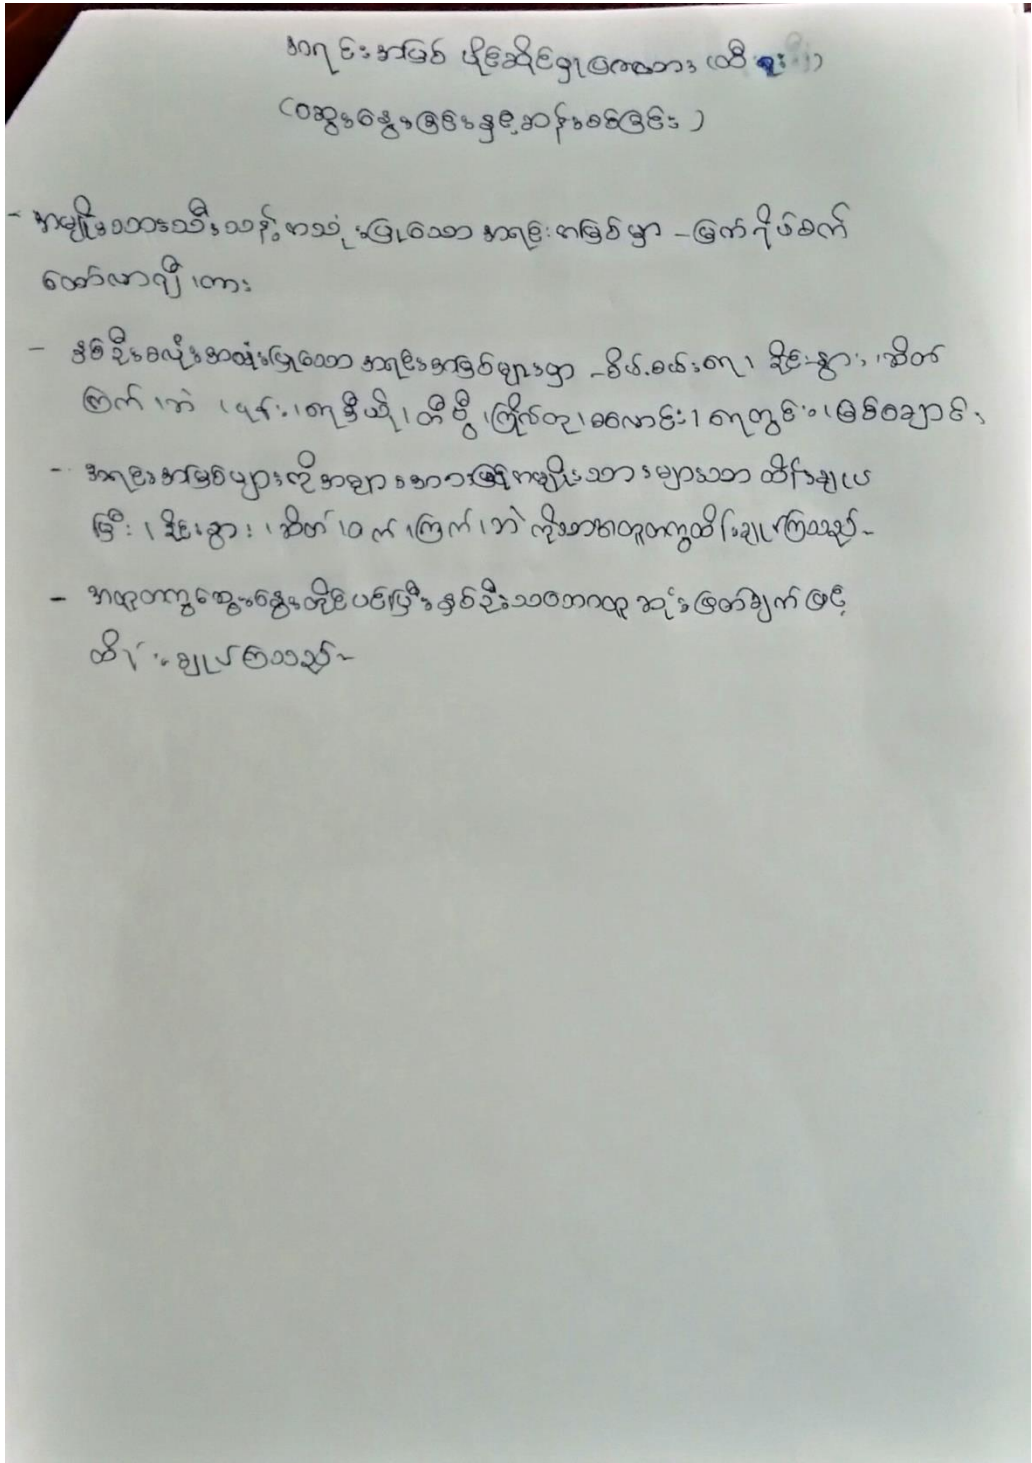 အရင်းအမြစ် ပိုင်ဆိုင်မှုဇယား (ထီး
(ဆွေးနွေးခြင်းနှင့်ဆန်းစစ်ခြင်း)
- အမျိုးသားသီးသန့်အသုံးပြုသော အရင်းအမြစ်မှာ - မြက်ရိတ်စက်
ထော်လာဂျီ ၊ကား
- နှစ်ဦးစလုံးအသုံးပြုသော အရင်းအမြစ်များမှာ - စိမ့်စမ်းရေ၊ ခိုင်းနွား၊ ၊ဆိတ်
ကြက် ၊ဘဲ ၊ဖုန်း ၊ရေဒီယို ၊တီဗွီ ၊ကြိုးတု၊ လောင်း၊ ရေတွင်း၊ မြစ်ချောင်း
- အရင်းအမြစ်များကို အများအားဖြင့်အမျိုးသားများသာ ထိန်းချုပ်
ပြီး ၊ ခိုင်းနွား ၊ ဆိတ် ၊ဝက် ၊ကြက် ၊ဘဲ ကိုသာအတူတကွထိန်းချုပ်ကြသည်-
- အတူတကွဆွေးနွေးတိုင်ပင်ပြီးနှစ်ဦးသဘောတူ ဆုံးဖြတ်ချက် ဖြင့်
ထိန်းချုပ်ကြသည်-